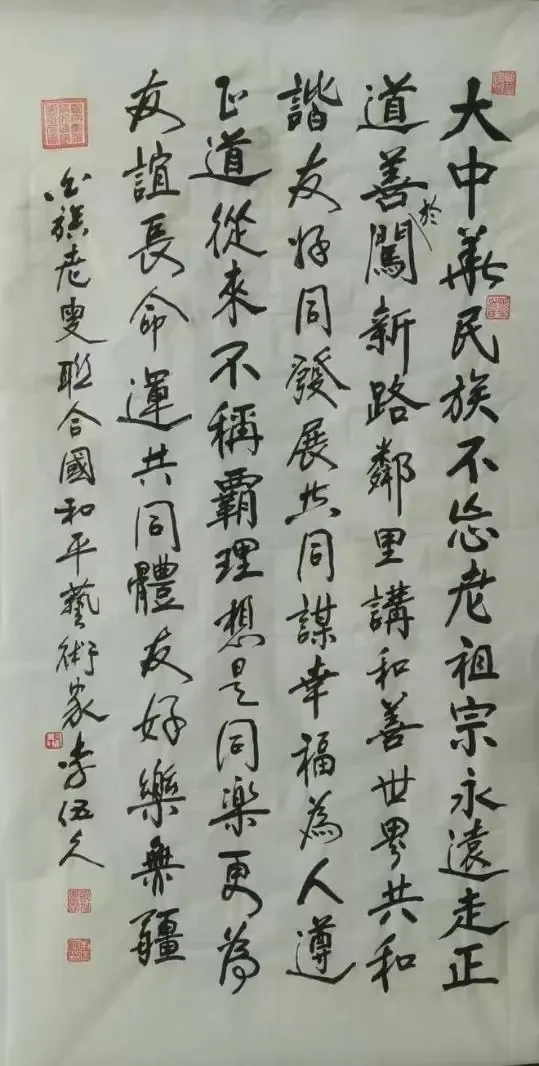 大中華民族不忘老祖宗永遠走正
道善於闖新路鄰里講和善世界共和
諧友好同發展共同謀幸福為人遵
正道從來不稱霸理想是同樂更為
友誼長命運共同體友好樂無疆
白族老叟聯合國和平藝術家李伍久